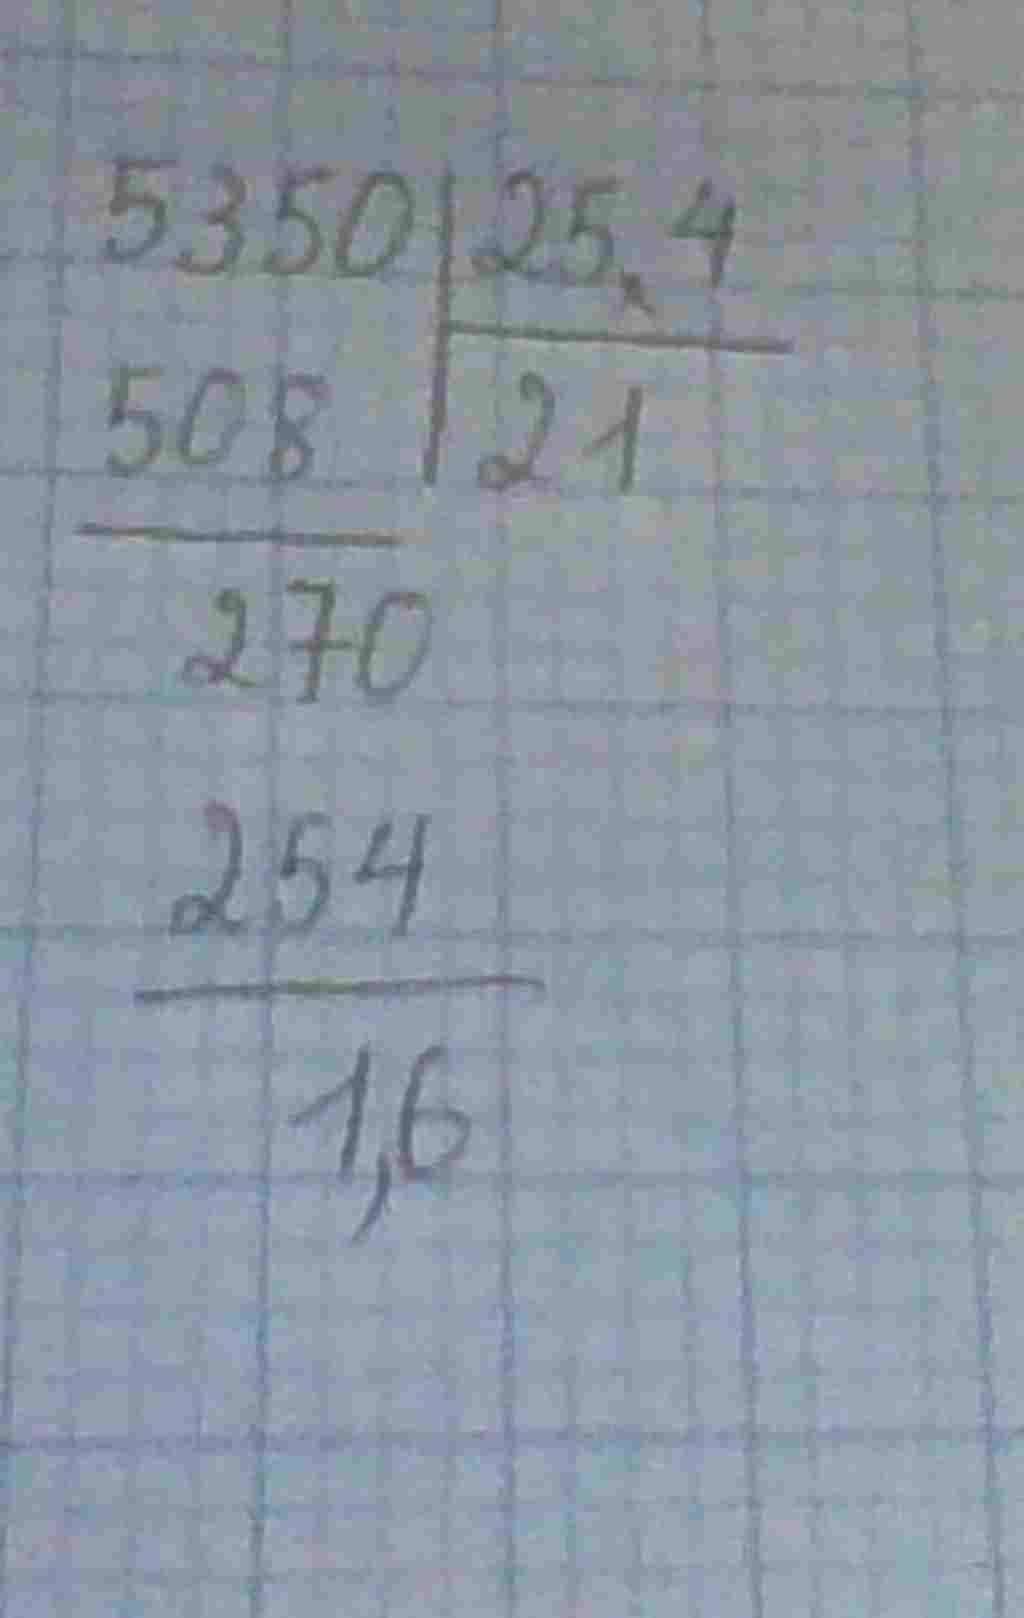 5350 25,4
508 21
270
254
1,6